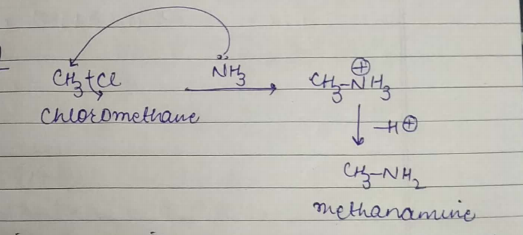 CH₃+Cl
N̈H₃
CH₃-N⊕H₃
Chloromethane
-H⊕
CH₃-NH₂
methanamine